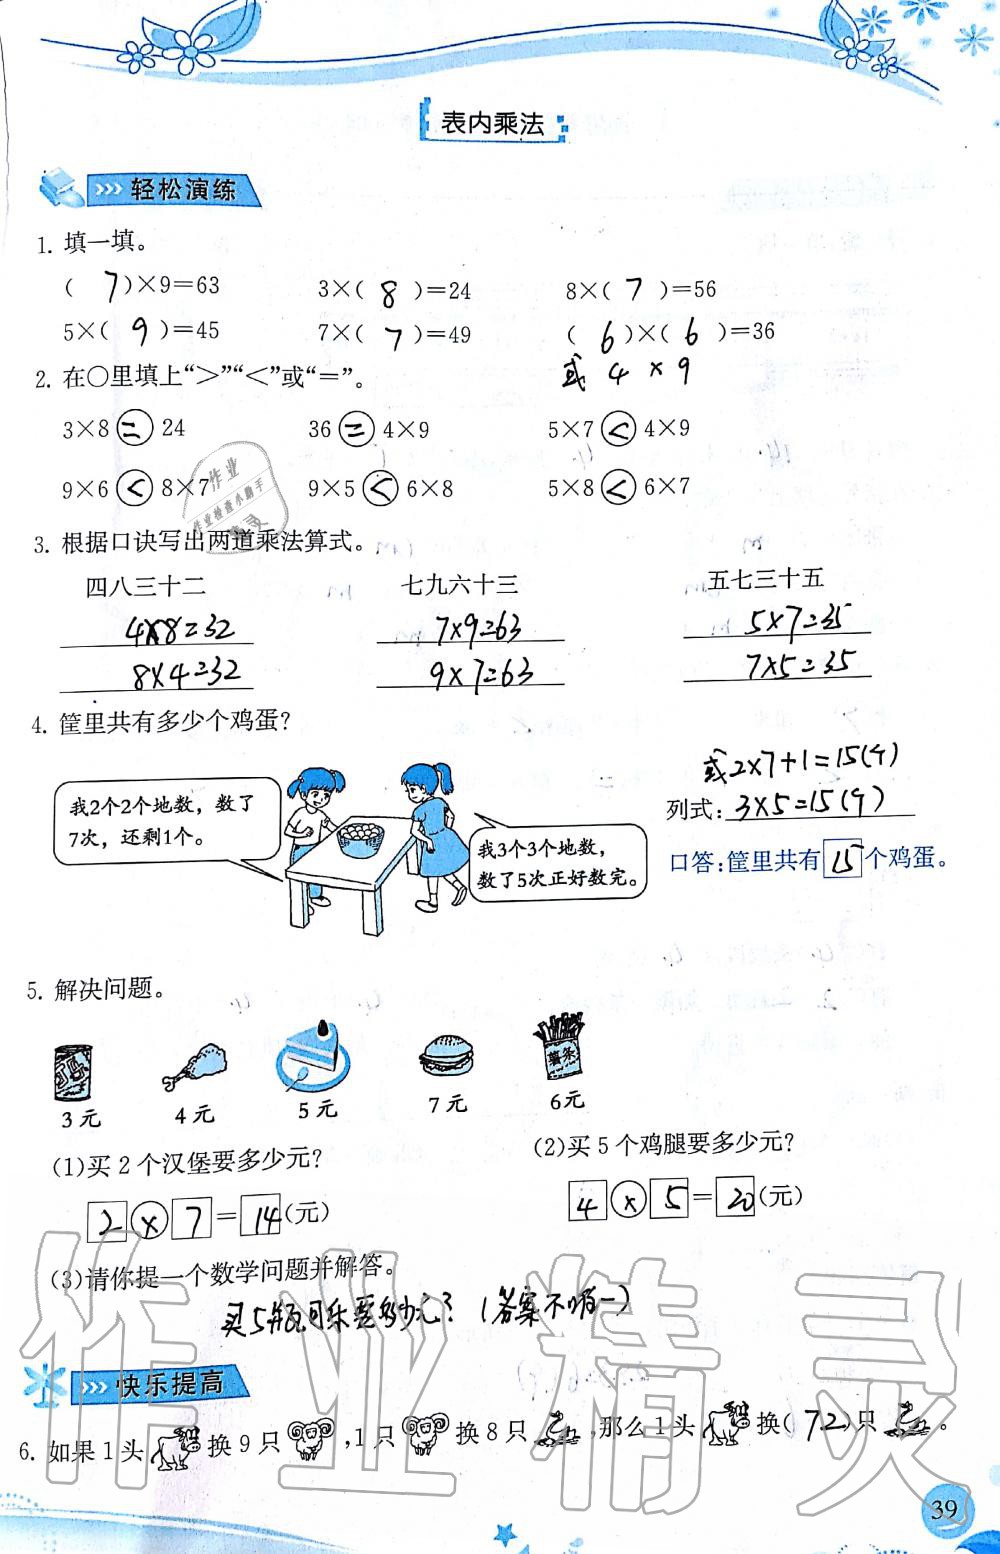 表内乘法
轻松演练
1. 填一填。
( 7 )×9=63  3×( 8 )=24  8×( 7 )=56
5×( 9 )=45  7×( 7 )=49  ( 6 )×( 6 )=36
2. 在○里填上“>”“<”或“=”。  或 4×9
3×8 = 24  36 = 4×9  5×7 < 4×9
9×6 < 8×7  9×5 < 6×8  5×8 < 6×7
作业
作业检查小助手
精灵
3. 根据口诀写出两道乘法算式。
四八三十二  七九六十三  五七三十五
4×8=32  7×9=63  5×7=35
8×4=32  9×7=63  7×5=35
4. 筐里共有多少个鸡蛋?
我2个2个地数，数了
7次，还剩1个。
我3个3个地数，
数了5次正好数完。
或2×7+1=15(个)
列式：3×5=15(个)
口答：筐里共有 15 个鸡蛋。
5. 解决问题。
薯条
3元  4元  5元  7元  6元
(1)买2个汉堡要多少元?  (2)买5个鸡腿要多少元?
2 × 7 = 14 (元)  4 × 5 = 20 (元)
(3)请你提一个数学问题并解答。
买5瓶可乐要多少元？(答案不唯一)
作业精灵
快乐提高
6. 如果1头换9只，1只换8只，那么1头换( 72 )只。
39